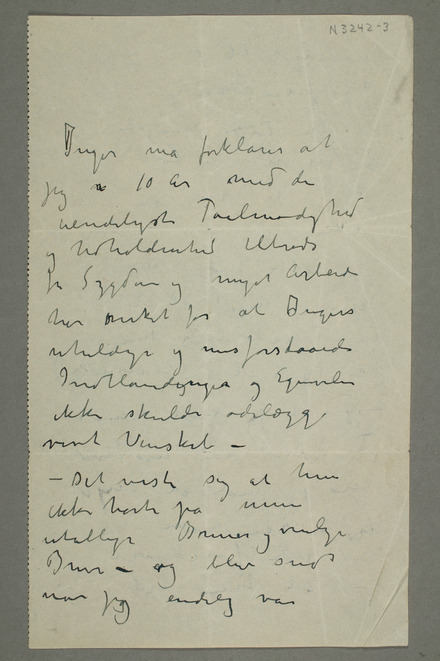 N 3242-3
Inger må forklares at
jeg i 10 år med de
uendeligste Taalmodighed
og Udholdenhed tiltrods
for Sygdom og meget Arbeide
har virket for at Ingers
uheldige og misforstaaede
Indblandinger og Egenvilie
ikke skulde ødelægge
vort Venskab –
– Det viste sig at hun
ikke hørte på mine
utallige Bønner og venlige
Breve – og blev sindt
når jeg endelig var